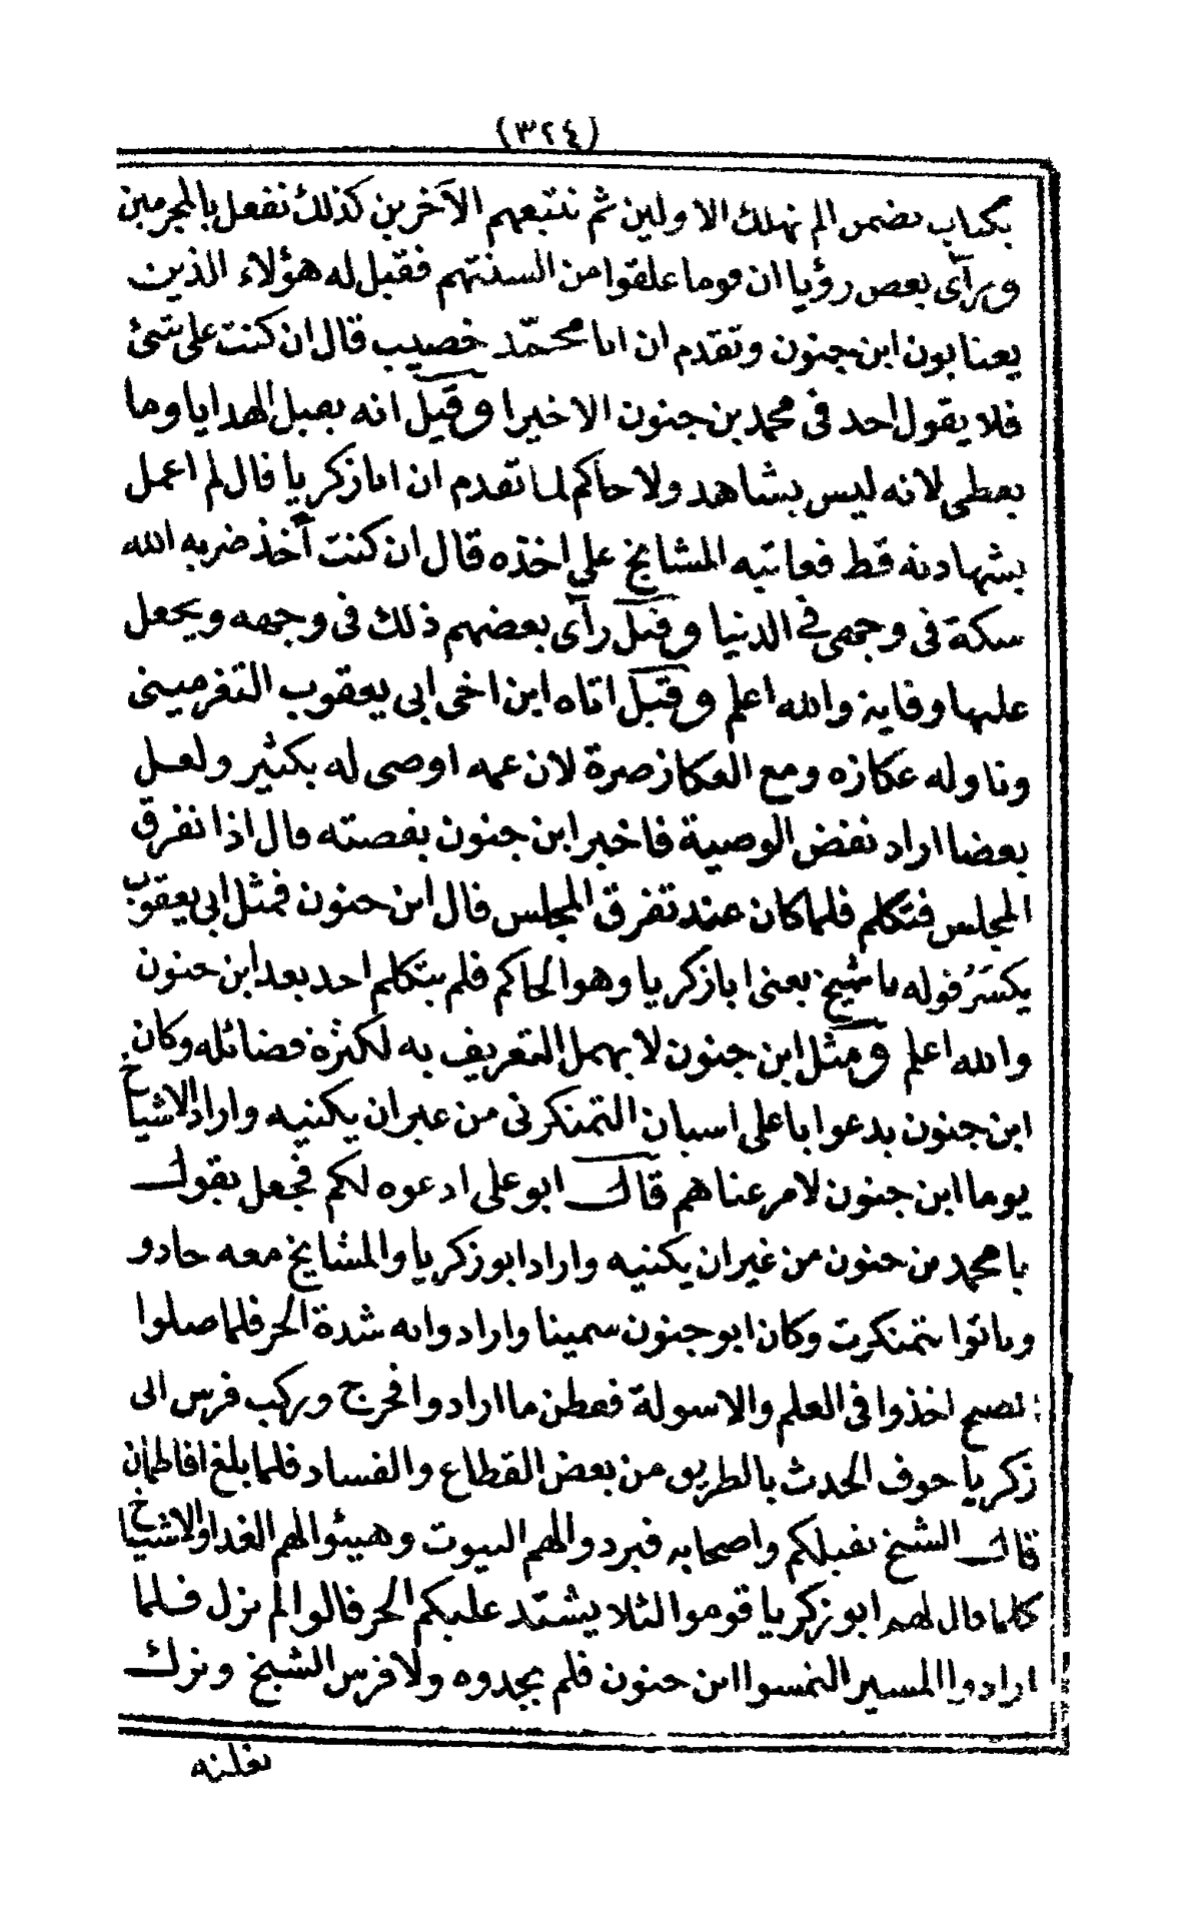 (٣٢٤)
بكتاب تضمن الم نهلك الاولين ثم نتبعهم الآخرين كذلك نفعل بالمجرمين
ورآى بعض رؤيا ان قوما علقوا من السنتهم فقيل له هؤلاء الذين
يعتابون ابن جنون وتقدم ان ابا محمّد خصيب قال ان كنت على شئ
فلا يقول احد فى محمد بن جنون الا خيرا وقيل انه يقبل الهدايا وما
يعطى لانه ليس بشاهد ولا حاكم لما تقدم ان ابا زكريا قال لم اعمل
بشهادته قط فعاتبه المشايخ على اخذه قال ان كنت آخذ ضربه الله
سكة فى وجهى فى الدنيا وقيل رآى بعضهم ذلك فى وجهه ويجعل
عليها وقاية والله اعلم وقيل اتاه ابن اخى ابى يعقوب التغرمينى
وناوله عكازه ومع العكاز صرة لان عمه اوصى له بكثير ولعل
بعضا اراد نقض الوصية فاخبر ابن جنون بقصته قال اذا تفرق
المجلس فتكلم فلما كان عند تفرق المجلس قال ابن جنون فمثل ابى يعقوب
يكسَرُ قوله يا شيخ يعنى ابا زكريا وهو الحاكم فلم يتكلم احد بعد ابن جنون
والله اعلم ومثل ابن جنون لا يهمل التعريف به لكثرة فضائله وكان
ابن جنون يدعوا با على اسبان التمنكرتى من غير ان يكنيه واراد الاشياخ
يوما ابن جنون لامر عناهم قال ابو على ادعوه لكم فجعل يقول
يا محمد بن جنون من غير ان يكنيه واراد ابو زكريا والمشايخ معه جادو
وباتوا بتمنكرت وكان ابو جنون سمينا وارادوا به شدة الحر فلما صلوا
الصبح اخذوا فى العلم والاسولة ففطن ما ارادوا فخرج وركب فرس ابى
زكريا خوف الحدث بالطريق من بعض القطاع والفساد فلما بلغ افاطمان
قال الشيخ نقيلكم واصحابه فبردوا لهم البيوت وهيئوا لهم الغدا والاشياخ
كلما قال لهم ابو زكريا قوموا لئلا يشتد عليكم الحر قالوا لم نزل فلما
ارادوا المسير التمسوا ابن جنون فلم يجدوه ولا فرس الشيخ ونزل